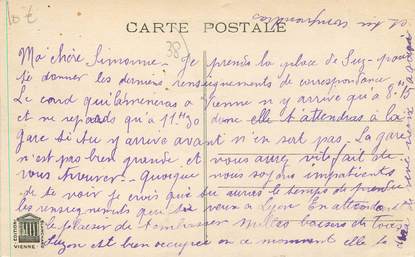 CARTE POSTALE
38
Ma chère Simonne - Je prends la place de Suz- pour
te donner les derniers renseignements de correspondance
Le card qui t'amèneras à Vienne n'y arrive qu'à 8h 15
et ne repards qu'à 11h 30 donc elle t'attendras à la
gare si tu y arrive avant n'en sort pas. La gare
n'est pas bien grande, et nous aurons vite fait de
vous trouver. - Quoique nous soyons impatients
de te voir je crois que tu auras le temps de prendre
les renseignements que tu veux à Lyon En attendant
le plaisir de t'embrasser milles baisers de tous
Suzon est bien occupée en ce moment elle te
EDITION
VIENNE